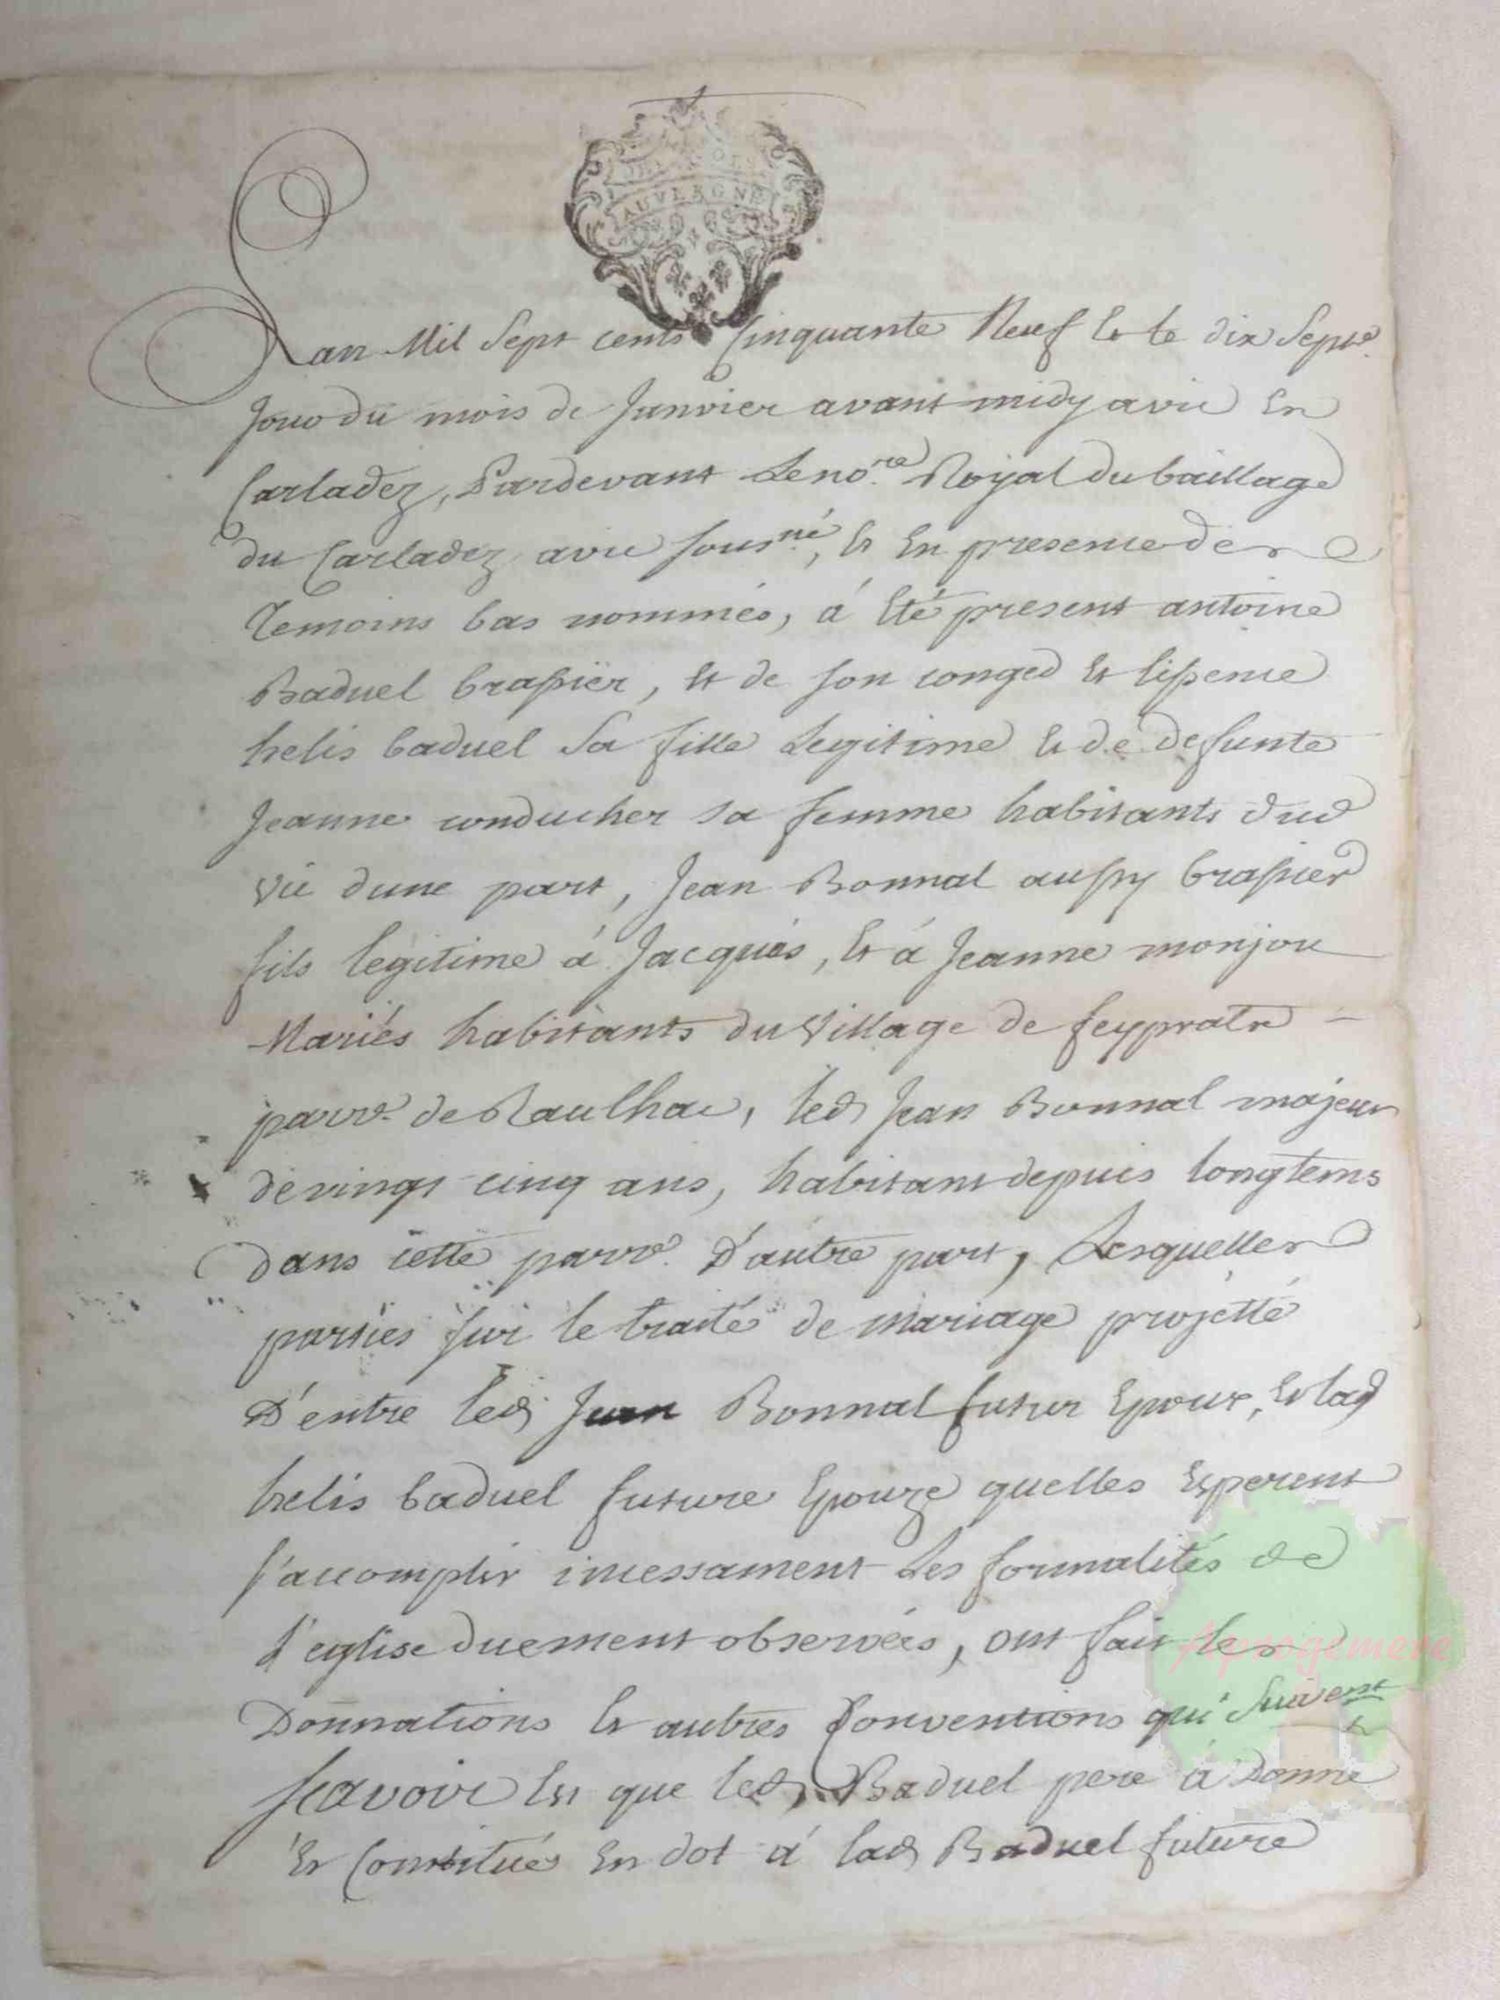 AUVERGNE
Lan Mil Sept cents Cinquante Neuf & le dix Septe
Jour du mois de Janvier avant midy a vic En
Carladez, Pardevant Le no.re Royal du bailliage
du Carladez a vic sous.né, & En presence de
Temoins bas nommés, á Eté present antoine
Baduel brassier, & de son conged & lissence
helis baduel Sa fille Legitime & de defunte
Jeanne conducher sa femme habitants dud
vic dune part, Jean Bonnal aussy brassier
fils legitime á Jacques, & á Jeanne monjou
Mariés habitants du Village de feyprat
parr.e de Raulhac, led Jean Bonnal majeur
de vingt cinq ans, habitant depuis longtems
dans cette parr.e D'autre part, Lesquelles
parties sur le traité de mariage projetté
D'entre led Jean Bonnal futur Epoux, & lad
helis baduel future Epouze quelles Esperent
s'accomplir incessament Les formalités de
l'eglise duement observées, ont fait les
Donnations & autres Conventions qui Suivent
&
Scavoir Est que led Baduel pere á Donné
& Constitué En dot á lad Baduel future
Aprogemere